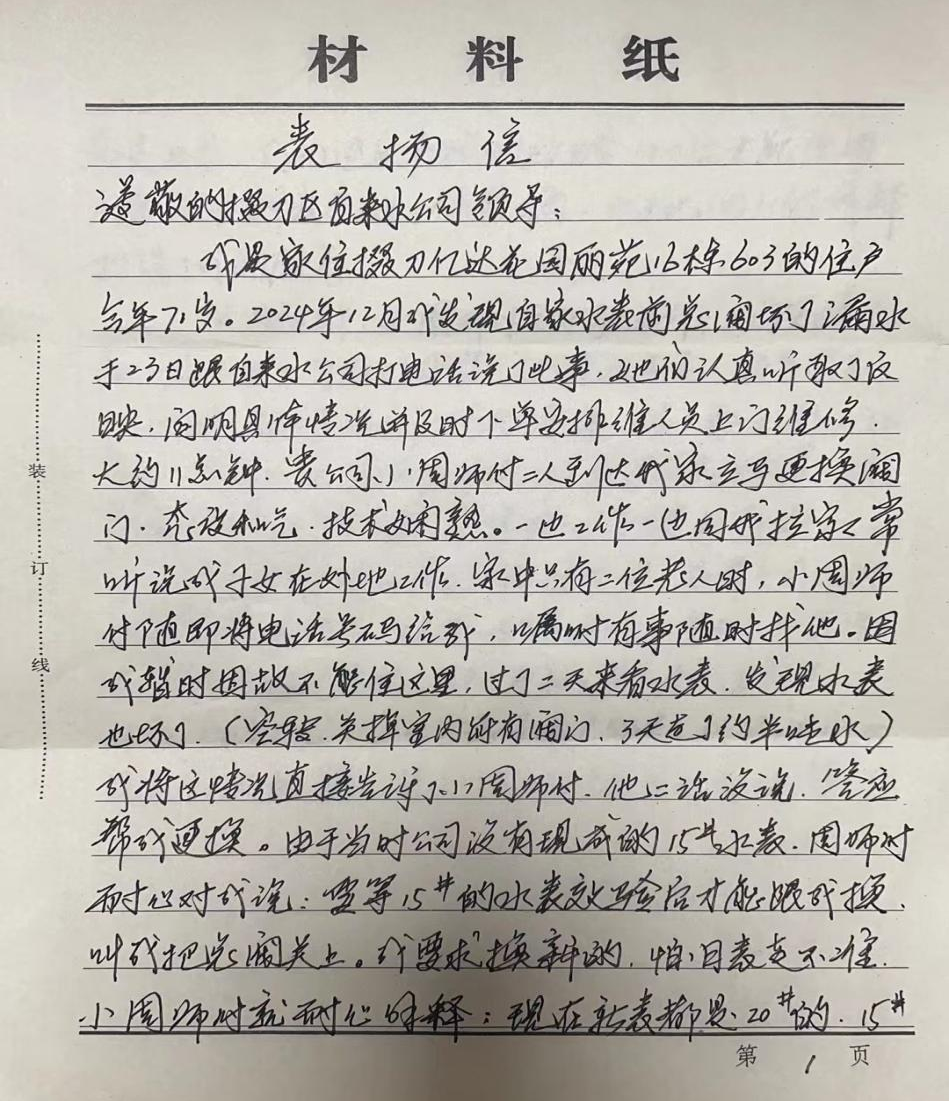 材料纸
表扬信
尊敬的掇刀区自来水公司领导：
我是家住掇刀亿达花园丽苑16栋603的住户
今年71岁。2024年12月我发现自家水表前总阀坏了漏水
于23日跟自来水公司打电话说了此事，她们认真听取了反
映，问明具体情况并及时下单安排维人员上门维修，
大约11点钟，贵公司小周师付二人到达我家立马更换阀
门，态度和气，技术娴熟。一边工作一边同我拉家常
听说我子女在外地工作，家中只有二位老人时，小周师
付随即将电话号码给我，嘱咐有事随时找他。因
我暂时因故不能住这里，过了二天来看水表，发现水表
也坏了，（空转，关掉室内所有阀门，3天走了约半吨水）
我将这情况直接告诉了小周师付，他二话没说，答应
帮我更换。由于当时公司没有现成的15#水表，周师付
耐心对我说：要等15#的水表效验后才能跟我换，
叫我把总阀关上。我要求换新的，怕旧表走不准，
小周师付就耐心解释：现在新表都是20#的，15#
装
订
线
第 1 页